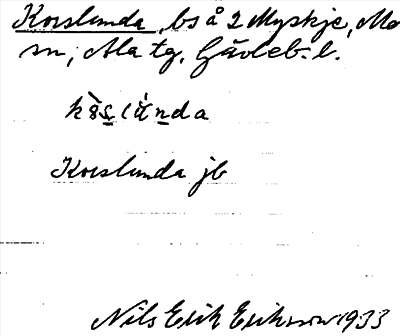 Korslunda, bs å 2 Myskje, Mo
sn, Ala tg. Gävleb. l.
Korslunda jb
Nils Erik Eriksson 1933